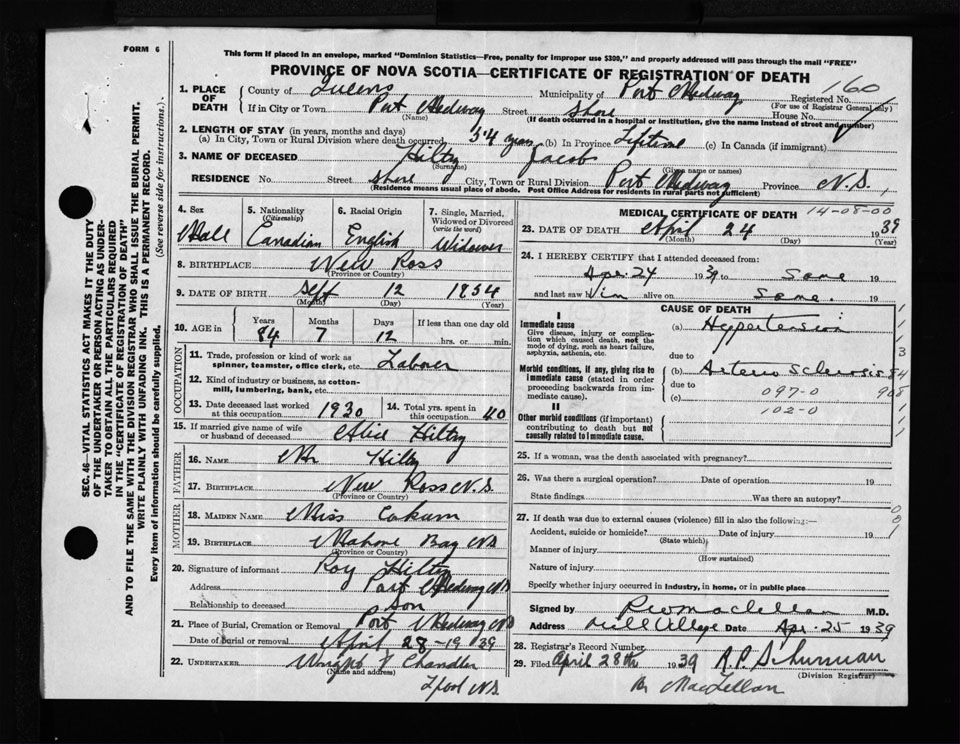 FORM 6
This form if placed in an envelope, marked "Dominion Statistics—Free, penalty for improper use $300," and properly addressed will pass through the mail "FREE"
PROVINCE OF NOVA SCOTIA—CERTIFICATE OF REGISTRATION OF DEATH
SEC. 46—VITAL STATISTICS ACT MAKES IT THE DUTY
OF THE UNDERTAKER OR PERSON ACTING AS UNDER-
TAKER TO OBTAIN ALL THE PARTICULARS REQUIRED
IN THE "CERTIFICATE OF REGISTRATION OF DEATH"
AND TO FILE THE SAME WITH THE DIVISION REGISTRAR WHO SHALL ISSUE THE BURIAL PERMIT.
WRITE PLAINLY WITH UNFADING INK. THIS IS A PERMANENT RECORD.
Every item of information should be carefully supplied. (See reverse side for instructions.)
1. PLACE OF DEATH County of Queens Municipality of Port Medway Registered No. 160
(For use of Registrar General only)
If in City or Town Port Medway Street Shore House No.
(Name) (If death occurred in a hospital or institution, give the name instead of street and number)
2. LENGTH OF STAY (in years, months and days)
(a) In City, Town or Rural Division where death occurred 54 years (b) In Province Lifetime (c) In Canada (if immigrant)
3. NAME OF DECEASED Hiltz Jacob
(Surname) (Given name or names)
RESIDENCE No. Street Shore City, Town or Rural Division Port Medway Province N.S.
(Residence means usual place of abode. Post Office Address for residents in rural parts not sufficient)
4. Sex Mall
5. Nationality (Citizenship) Canadian
6. Racial Origin English
7. Single, Married, Widowed or Divorced (write the word) Widower
8. BIRTHPLACE New Ross
(Province or Country)
9. DATE OF BIRTH Sept 12 1854
(Month) (Day) (Year)
10. AGE in Years 84 Months 7 Days 12 If less than one day old
hrs. or min.
OCCUPATION
11. Trade, profession or kind of work as spinner, teamster, office clerk, etc. Labourer
12. Kind of industry or business, as cotton-mill, lumbering, bank, etc.
13. Date deceased last worked at this occupation 1930
14. Total yrs. spent in this occupation 40
15. If married give name of wife or husband of deceased Alice Hiltz
FATHER
16. NAME Mr Hiltz
17. BIRTHPLACE New Ross N.S
(Province or Country)
MOTHER
18. MAIDEN NAME Miss
19. BIRTHPLACE Mahone Bay NS
(Province or Country)
20. Signature of informant Roy Hiltz
Address Port Medway NS
Relationship to deceased Son
21. Place of Burial, Cremation or Removal Port Medway NS
Date of burial or removal April 28 1939
22. UNDERTAKER Wright & Chandler
(Name and address)
L'pool NS
MEDICAL CERTIFICATE OF DEATH 14-08-00
23. DATE OF DEATH April 24 1939
(Month) (Day) (Year)
24. I HEREBY CERTIFY that I attended deceased from:
Apr. 24 1939 to Same 19
and last saw him alive on Same. 19
CAUSE OF DEATH
I
Immediate cause
Give disease, injury or complication which caused death, not the mode of dying, such as heart failure, asphyxia, asthenia, etc.
(a) Hypertension
due to
Morbid conditions, if any, giving rise to immediate cause (stated in order proceeding backwards from immediate cause).
(b) Arterio Sclerosis 84
due to
(c) 097-0 908
102-0
II
Other morbid conditions (if important) contributing to death but not causally related to immediate cause.
25. If a woman, was the death associated with pregnancy?
26. Was there a surgical operation? Date of operation 19
State findings Was there an autopsy?
27. If death was due to external causes (violence) fill in also the following:—
Accident, suicide or homicide? Date of injury 19
(State which)
Manner of injury
(How sustained)
Nature of injury
Specify whether injury occurred in industry, in home, or in public place
Signed by Maclellan M.D.
Address Mill Village Date Apr. 25 1939
28. Registrar's Record Number
29. Filed April 28th 1939 R.P. Schurman
(Division Registrar)
Per MacLellan